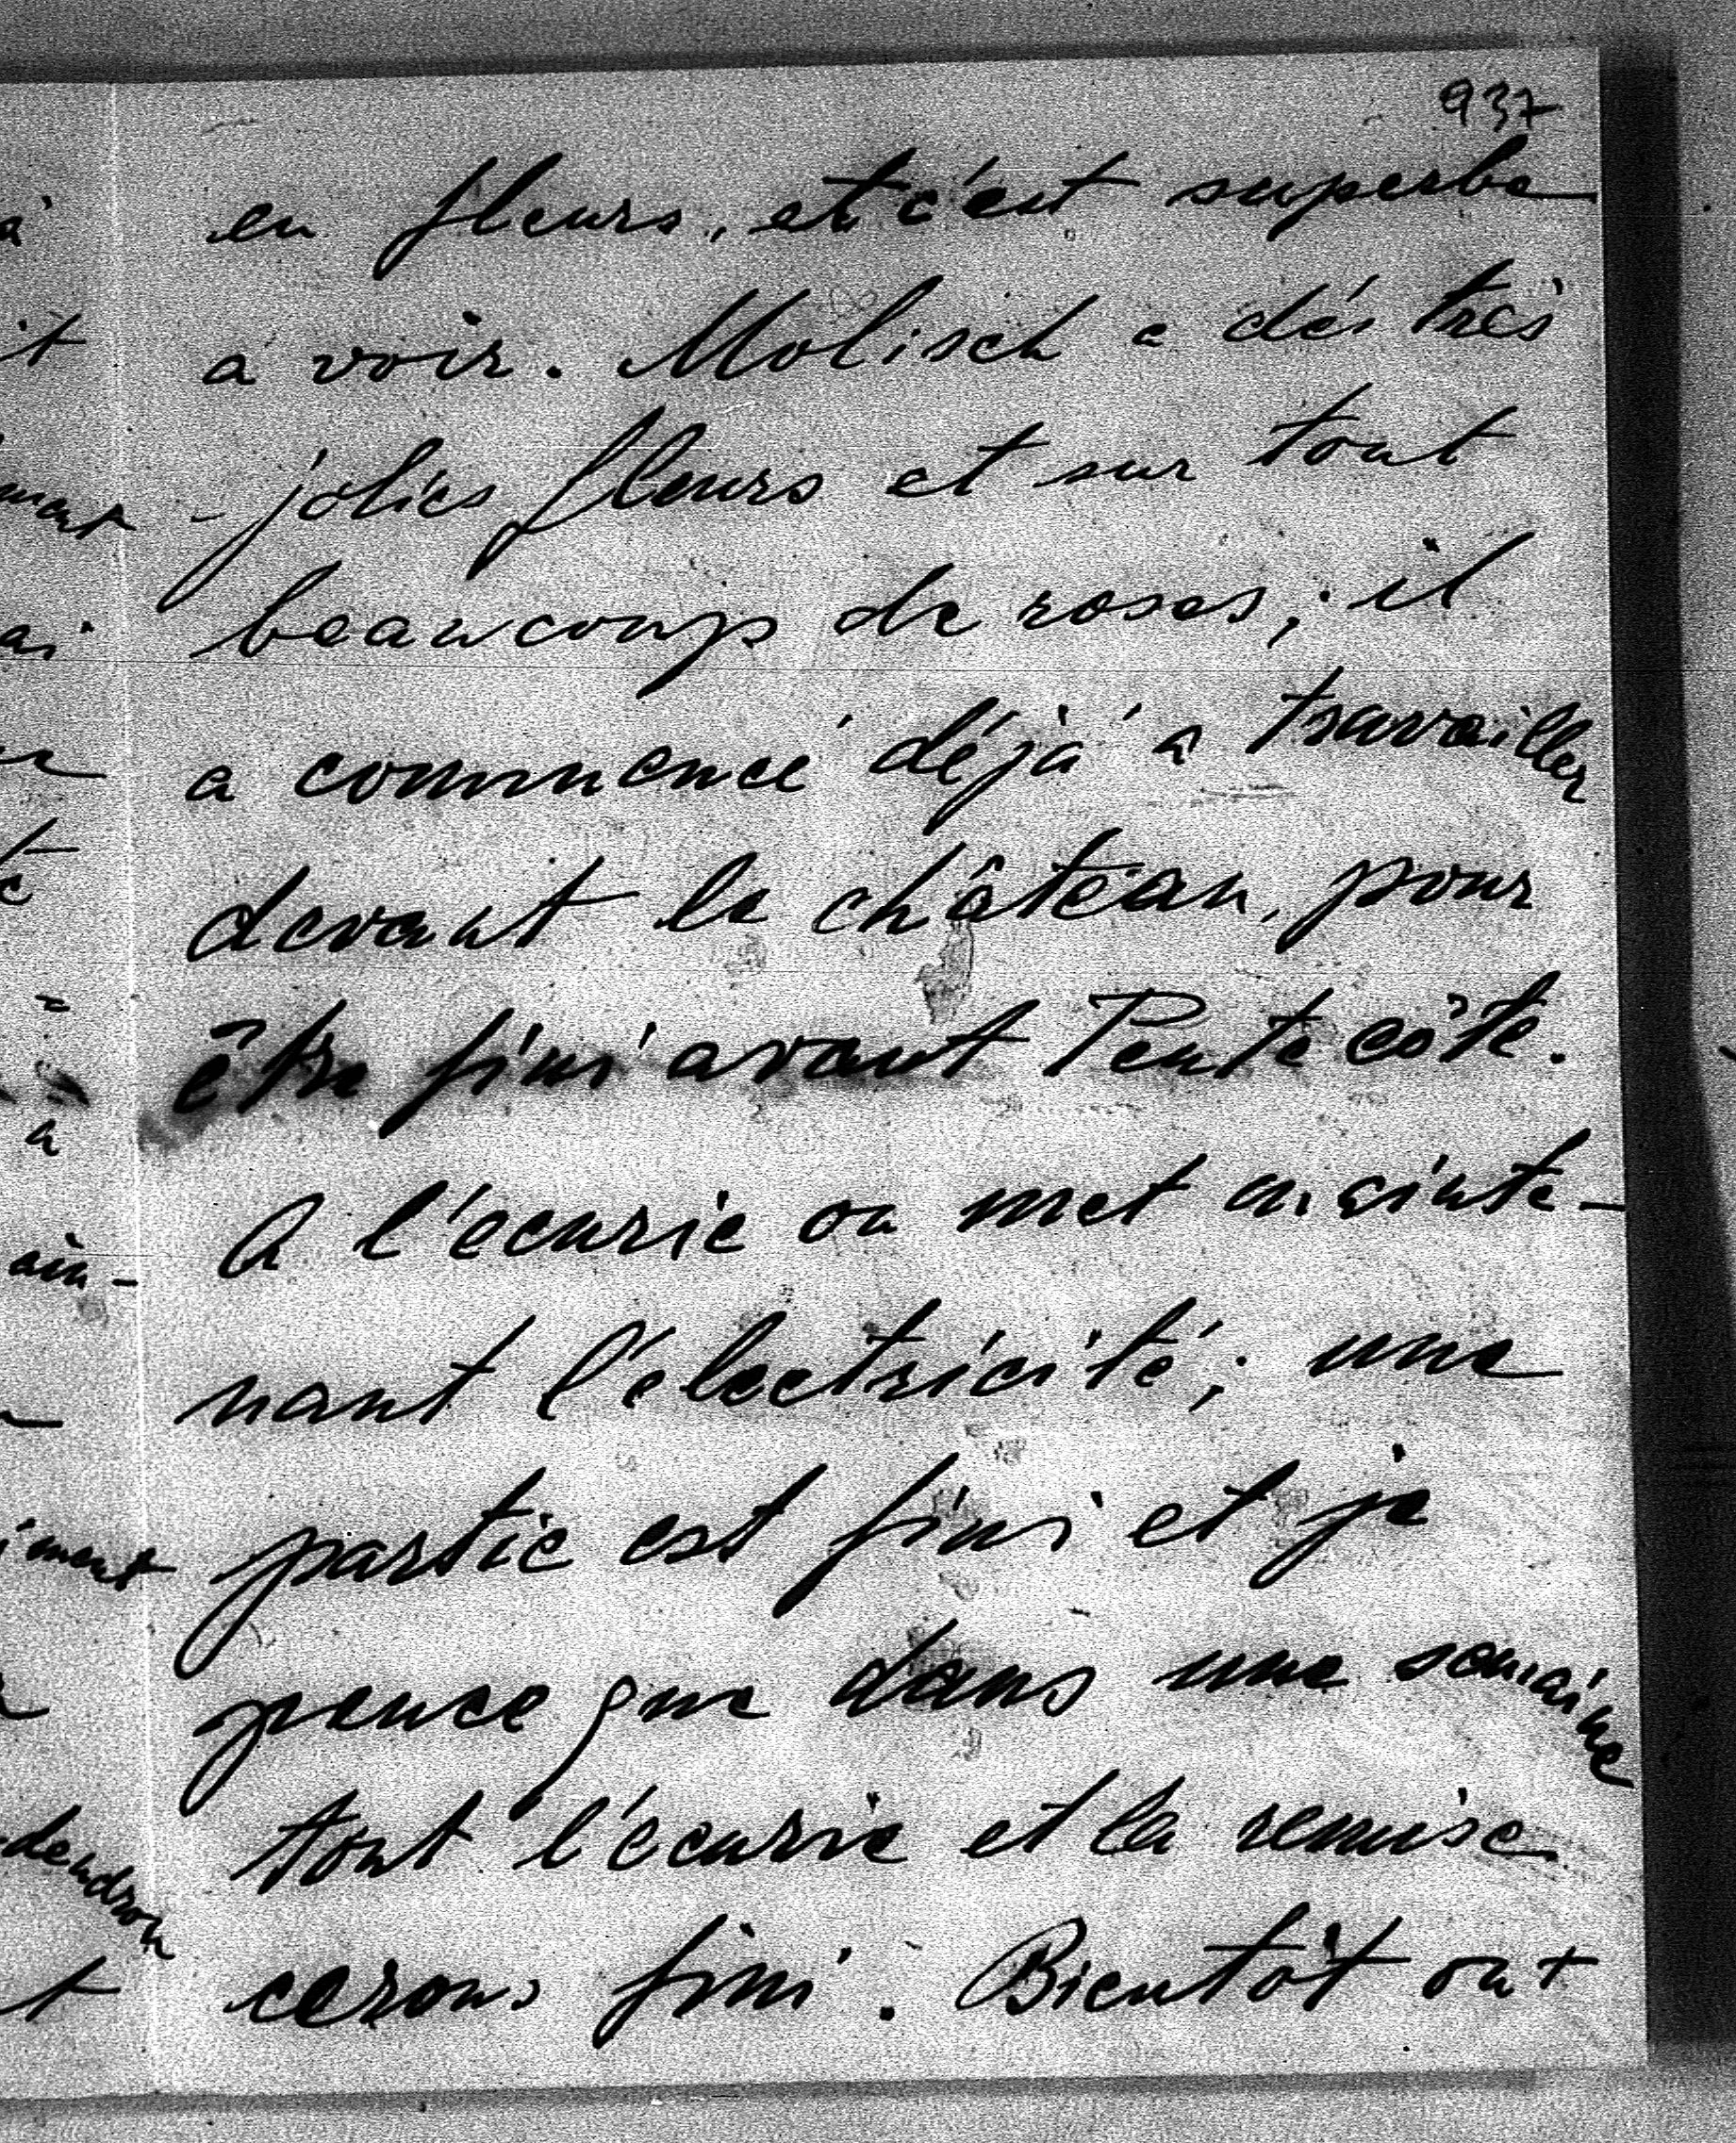 937
en fleurs, et c'est superbe
a voir. Molisch a dés très
jolies fleurs et sur tout
beaucoup de roses; il
a commencé déjà à travailler
devant le château, pour
être fini avant Pentecôte.
A l'écurie on met mainte-
nant l'électricité; une
partie est fini et je
pence que dans une semaine
tout l'écurie et la remise
cerons fini. Bientôt ont